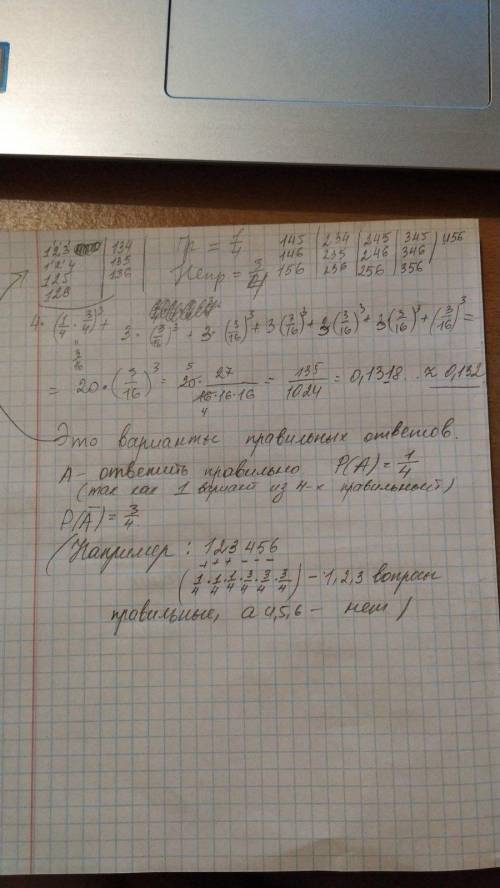 123 | 134 | Пр = 1/4 145 | 234 | 245 | 345 | 456
124 | 135 | 146 | 235 | 246 | 346
125 | 136 | Непр = 3/4 156 | 236 | 256 | 356
126
4·(1/4·3/4)³ + 3·(3/16)³ + 3·(3/16)³ + 3(3/16)³ + 3(3/16)³ + 3(3/16)³ + (3/16)³ =
3/16
= 20·(3/16)³ = 20·27/16·16·16 = 135/1024 = 0,1318.. ≈ 0,132
Это варианты правильных ответов.
A - ответить правильно P(A) = 1/4
(так как 1 вариант из 4-х правильный)
P(Ā) = 3/4
(Например: 123456
+ + + - - -
(1/4·1/4·1/4·3/4·3/4·3/4) - 1,2,3 вопросы
правильные, а 4,5,6 - нет)